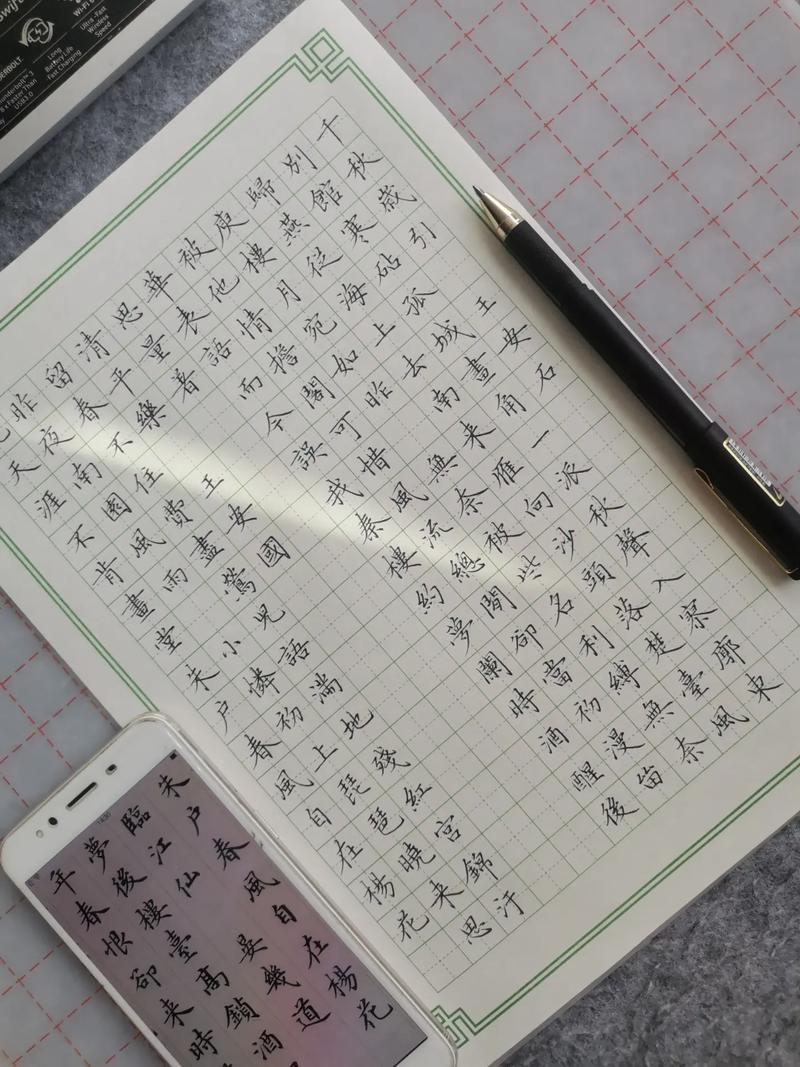 千秋歲引 王安石
別館寒砧孤城畫角一派秋聲入寥廓東
歸燕從海上去南來雁向沙頭落楚臺風
庾樓月宛如昨 無奈被些名利縛無奈
被他情擔閣可惜風流總閒卻當初漫笛
華表語而今誤我秦樓約夢闌時酒醒後
思量着
清平樂 王安國
留春不住費盡鶯兒語滿地殘紅宮錦汙
昨夜南園風雨 小憐初上琵琶曉來思
天涯不肯畫堂朱戶春風自在楊花
朱戶春風自在楊花
臨江仙 晏幾道
夢後樓臺高鎖酒
年春恨卻來時
Ultra Fast
Wireless
Speed
Long
Battery Life
Fast Charging
Faster Than
USB3.0